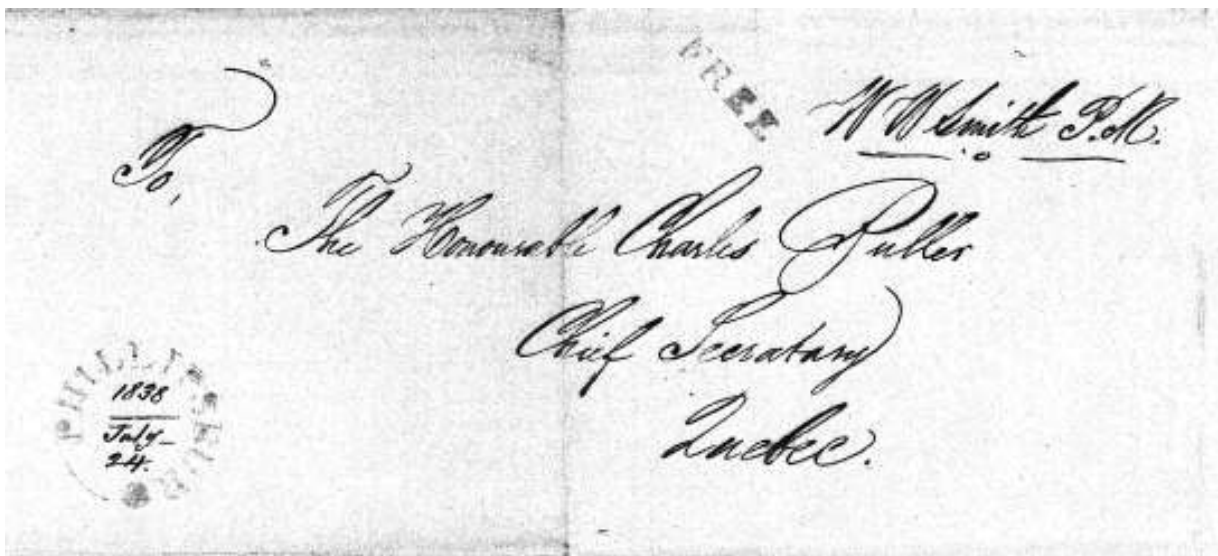 FREE
W W Smith P.M.
To,
The Honourable Charles Buller
Chief Secratary
Quebec.
PHILLIPSBURG
1838
July
24.